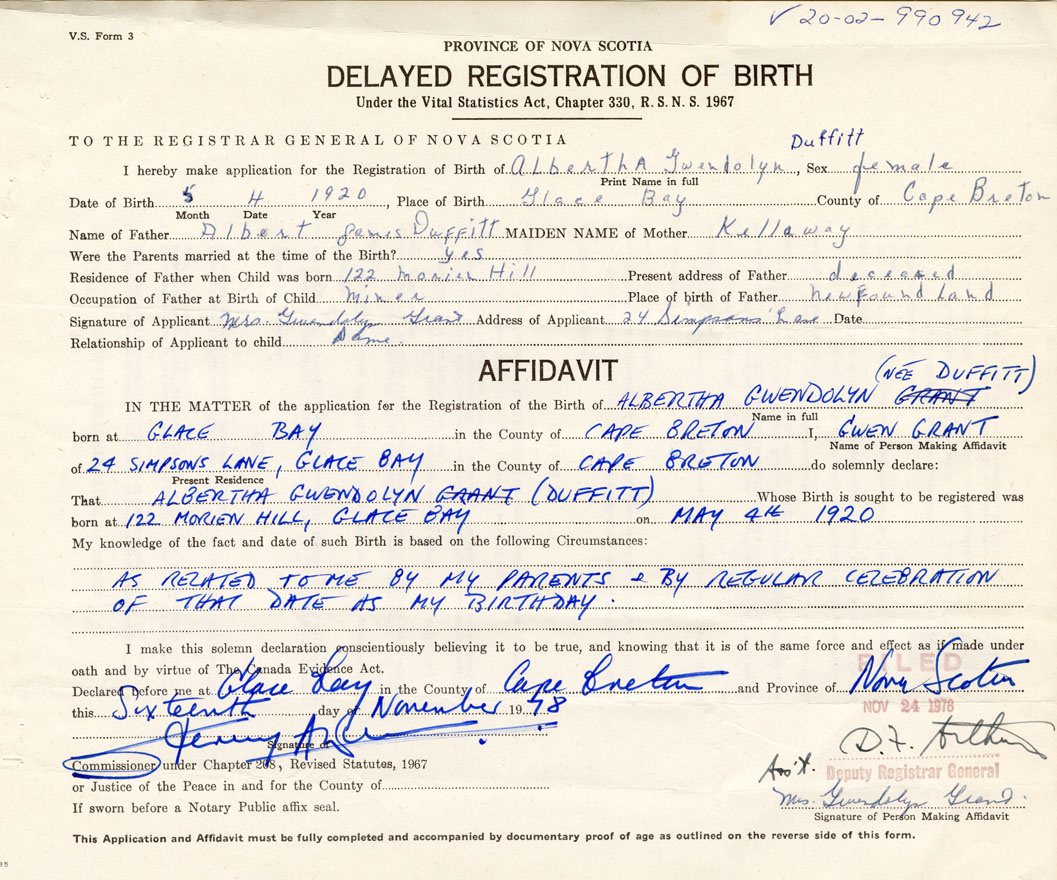 V.S. Form 3
✓ 20-02-990942
PROVINCE OF NOVA SCOTIA
DELAYED REGISTRATION OF BIRTH
Under the Vital Statistics Act, Chapter 330, R.S.N.S. 1967
TO THE REGISTRAR GENERAL OF NOVA SCOTIA
Duffitt
I hereby make application for the Registration of Birth of AlberthA Gwendolyn, Sex female
Print Name in full
Date of Birth 5 4 1920, Place of Birth Glace Bay County of Cape Breton
Month Date Year
Name of Father Albert James Duffitt MAIDEN NAME of Mother Kellaway
Were the Parents married at the time of the Birth? yes
Residence of Father when Child was born 122 Morien Hill Present address of Father deceased
Occupation of Father at Birth of Child Miner Place of birth of Father NewFound Land
Signature of Applicant Mrs Gwendolyn Grant Address of Applicant 24 Simpsons Lane Date
Relationship of Applicant to child Same.
AFFIDAVIT
(NÉE DUFFITT)
IN THE MATTER of the application for the Registration of the Birth of ALBERTHA GWENDOLYN GRANT
Name in full
born at GLACE BAY in the County of CAPE BRETON I, GWEN GRANT
Name of Person Making Affidavit
of 24 SIMPSONS LANE, GLACE BAY in the County of CAPE BRETON do solemnly declare:
Present Residence
That ALBERTHA GWENDOLYN GRANT (DUFFITT) Whose Birth is sought to be registered was
born at 122 MORIEN HILL, GLACE BAY on MAY 4TH 1920
My knowledge of the fact and date of such Birth is based on the following Circumstances:
AS RELATED TO ME BY MY PARENTS & BY REGULAR CELEBRATION
OF THAT DATE AS MY BIRTHDAY.
I make this solemn declaration conscientiously believing it to be true, and knowing that it is of the same force and effect as if made under
oath and by virtue of The Canada Evidence Act.
FILED
Declared before me at Glace Bay in the County of Cape Breton and Province of Nova Scotia
NOV 24 1978
this Sixteenth day of November 1978
Signature of
D.F. Arthur
Commissioner under Chapter 208, Revised Statutes, 1967
Ass't. Deputy Registrar General
or Justice of the Peace in and for the County of
Mrs. Gwendolyn Grant.
If sworn before a Notary Public affix seal.
Signature of Person Making Affidavit
This Application and Affidavit must be fully completed and accompanied by documentary proof of age as outlined on the reverse side of this form.